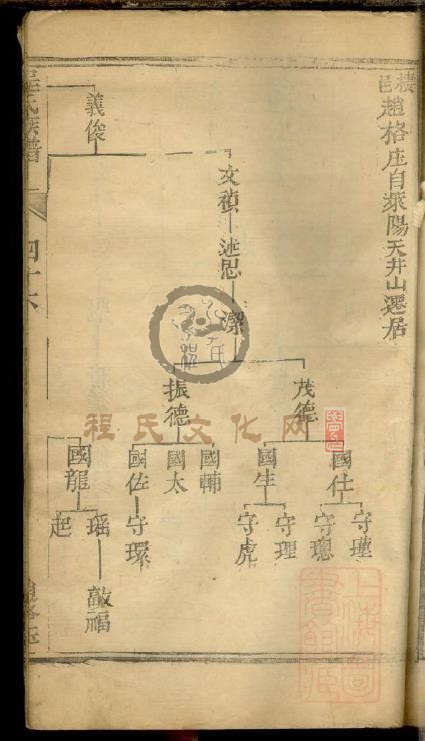 棲邑趙格庄自萊陽天井山遷居
文禎
述思
潔
茂德
振德
國仕
國生
國輔
國太
國佐
國龍
守瑾
守璁
守理
守虎
守環
瑶
起
敵福
義俊
程氏族譜
四十六
趙格庄
程氏文化网
上海圖書館藏